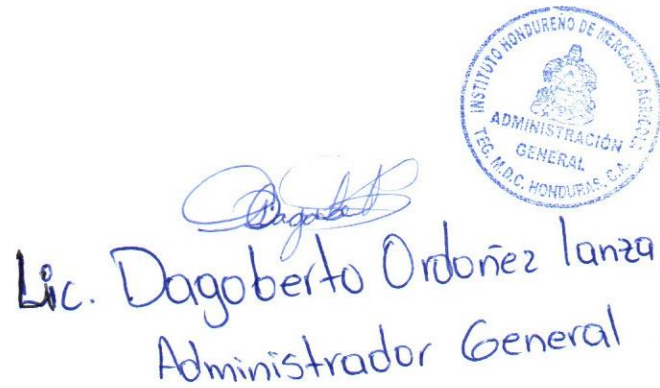 INSTITUTO HONDUREÑO DE MERCADEO AGRICOLA
ADMINISTRACIÓN
GENERAL
TEG. M.D.C. HONDURAS, C.A.
Dagobert
Lic. Dagoberto Ordoñez lanza
Administrador General